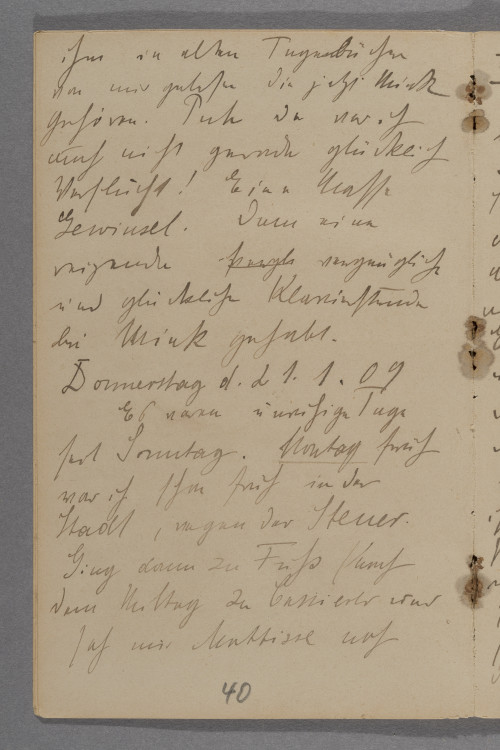 ihm in alten Tagebücher
von mir gelesen die jetzt Mink
gehören. Puh da war ich
auch nicht gerade glücklich
Verflucht! Eine Masse
Gewinsel. Dann eine
reizende vergnügliche
und glückliche Klavierstunde
bei Mink gehabt.
Donnerstag d. 21. 1. 09
Es waren unruhige Tage
seit Sonntag. Montag früh
war ich schon früh in der
Stadt, wegen der Steuer.
Ging dann zu Fuß nach
dem Mittag zu Cassierer und
sah mir Mattisse noch
40